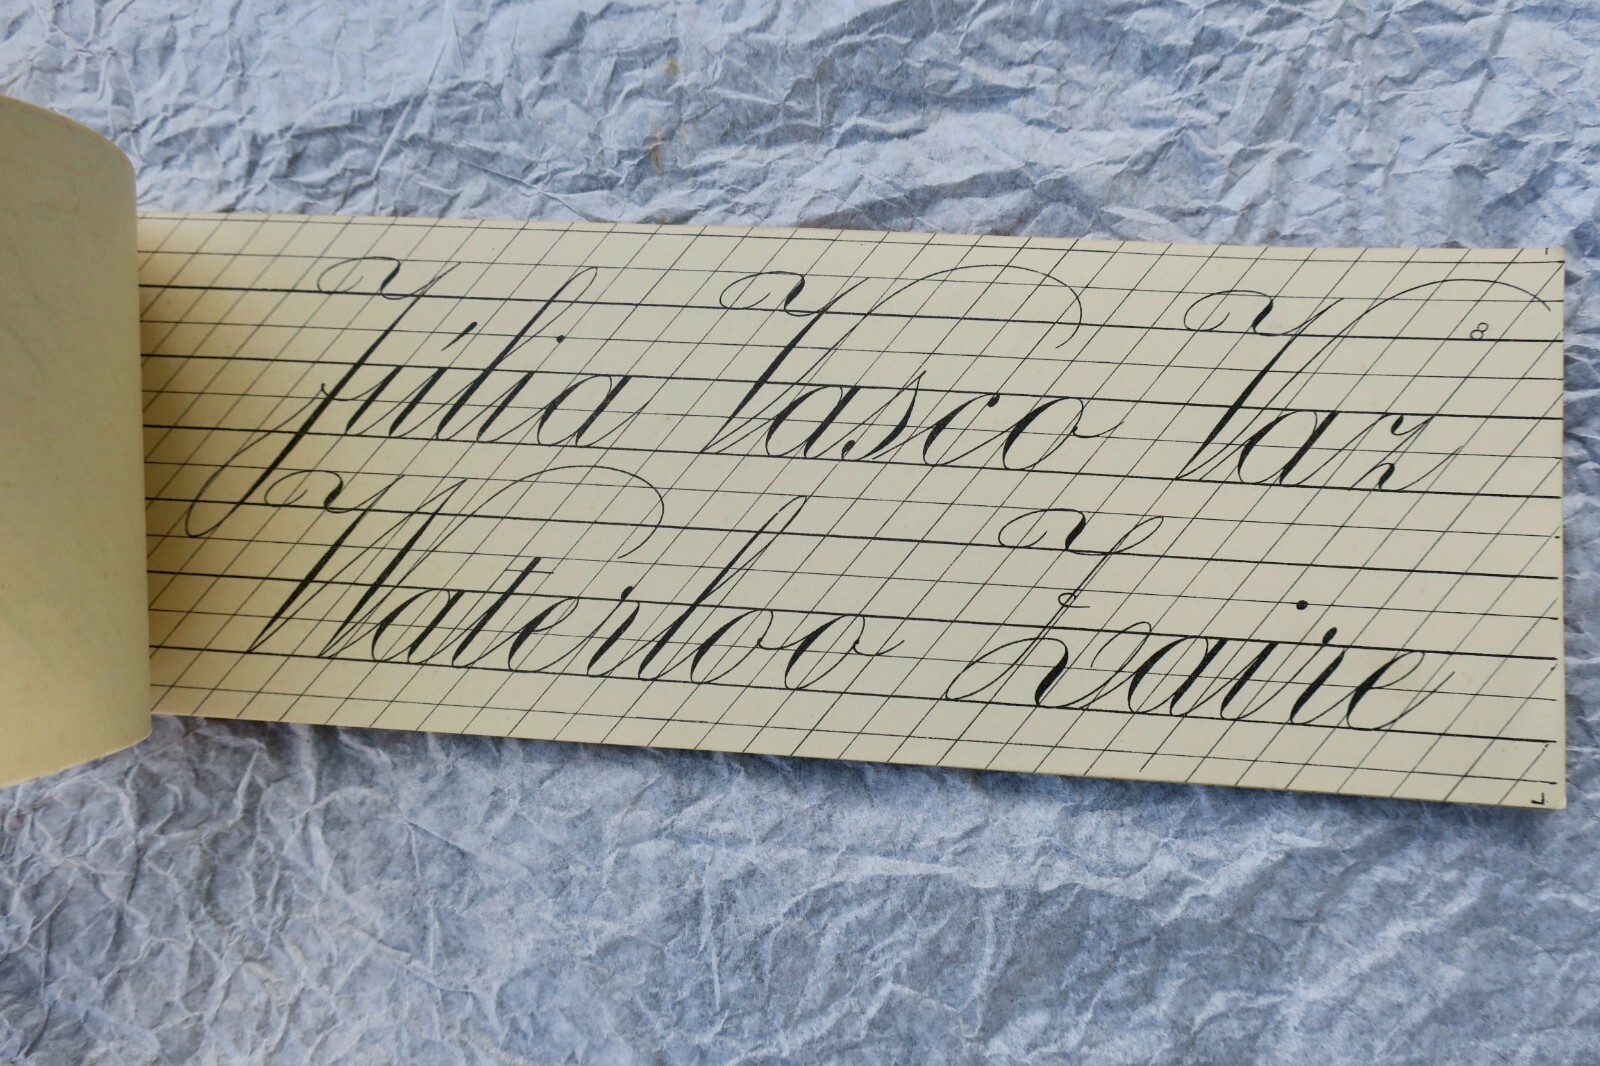 Júlia Vasco Vaz
8
Waterloo Zaire